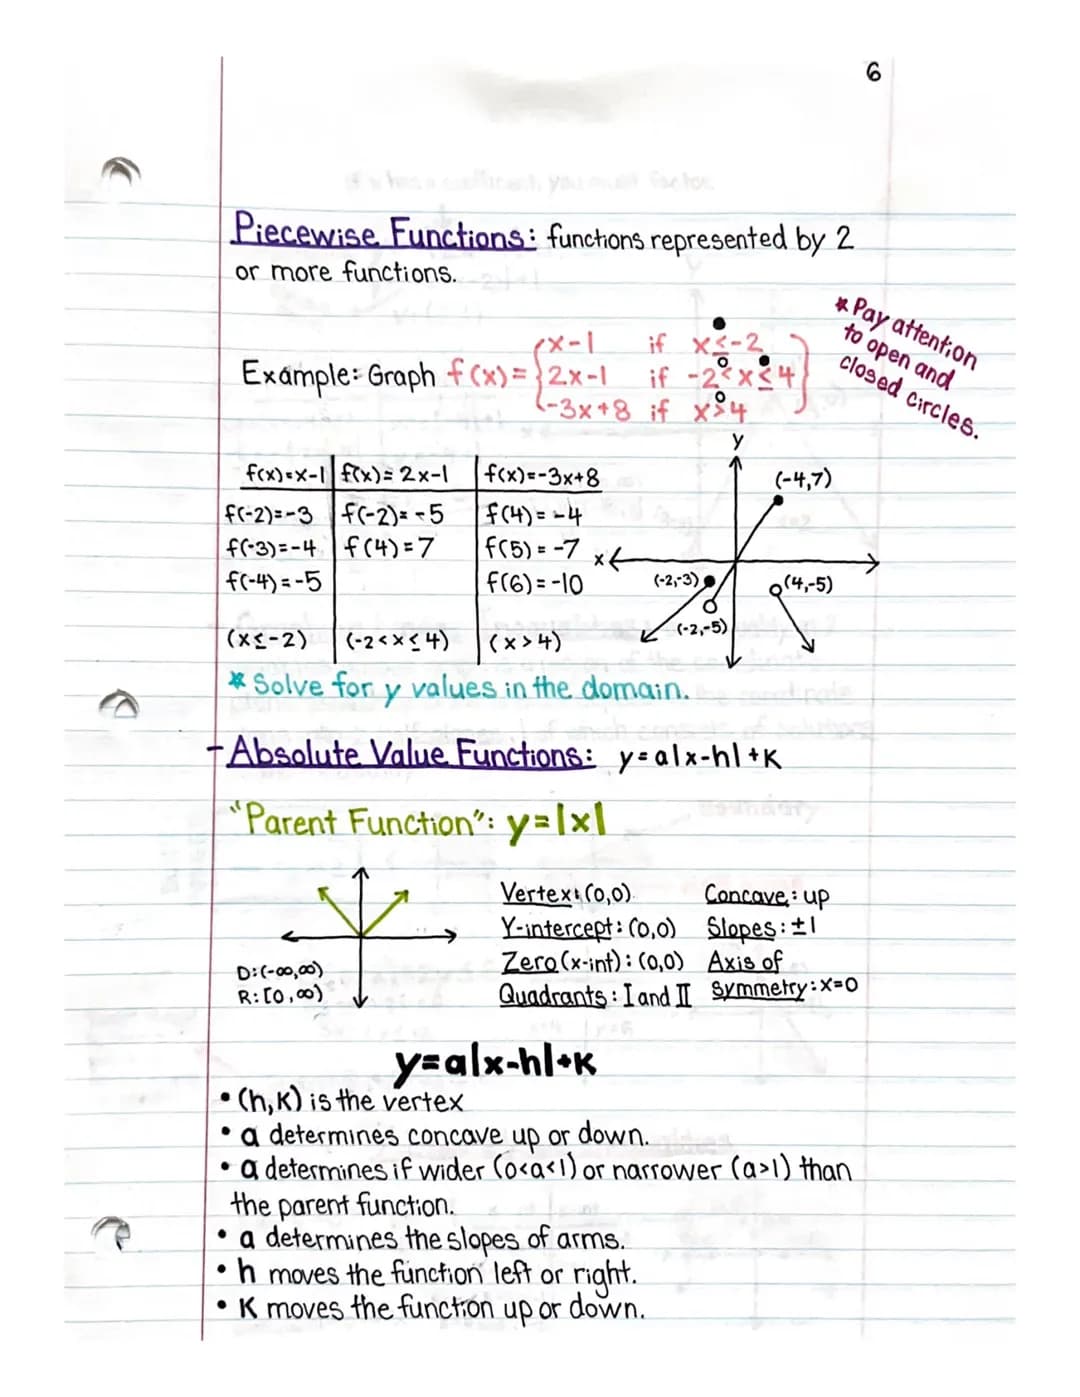 6
Piecewise Functions: functions represented by 2
or more functions.
* Pay attention
to open and
closed circles.
Example: Graph f(x)= { x-1 if x≤-2
2x-1 if -2<x≤4
-3x+8 if x>4 }
f(x)=x-1 | f(x)=2x-1 | f(x)=-3x+8
f(-2)=-3 | f(-2)=-5 | f(4)=-4
f(-3)=-4 | f(4)=7 | f(5)=-7
f(-4)=-5 | f(6)=-10
(x≤-2) | (-2<x≤4) | (x>4)
y
(-4,7)
x
(-2,-3)
(4,-5)
(-2,-5)
* Solve for y values in the domain.
-Absolute Value Functions: y=a|x-h|+K
"Parent Function": y=|x|
D:(-∞,∞)
R:[0,∞)
Vertex:(0,0) Concave: up
Y-intercept: (0,0) Slopes: ±1
Zero(x-int): (0,0) Axis of
Quadrants: I and II Symmetry: x=0
y=a|x-h|+K
• (h,K) is the vertex
• a determines concave up or down.
• a determines if wider (0<a<1) or narrower (a>1) than
the parent function.
• a determines the slopes of arms.
• h moves the function left or right.
• K moves the function up or down.